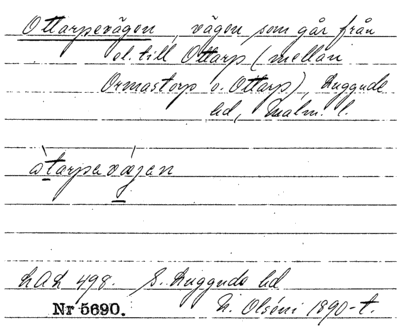 Ottarpevägen, vägen som går från
el. till Ottarp (mellan
Ormastorp o. Ottarp), Luggude
hd, Malm. l.
åtarpevägen
LAL 498. S. Luggude hd
Nr 5690. N. Olséni 1890-t.